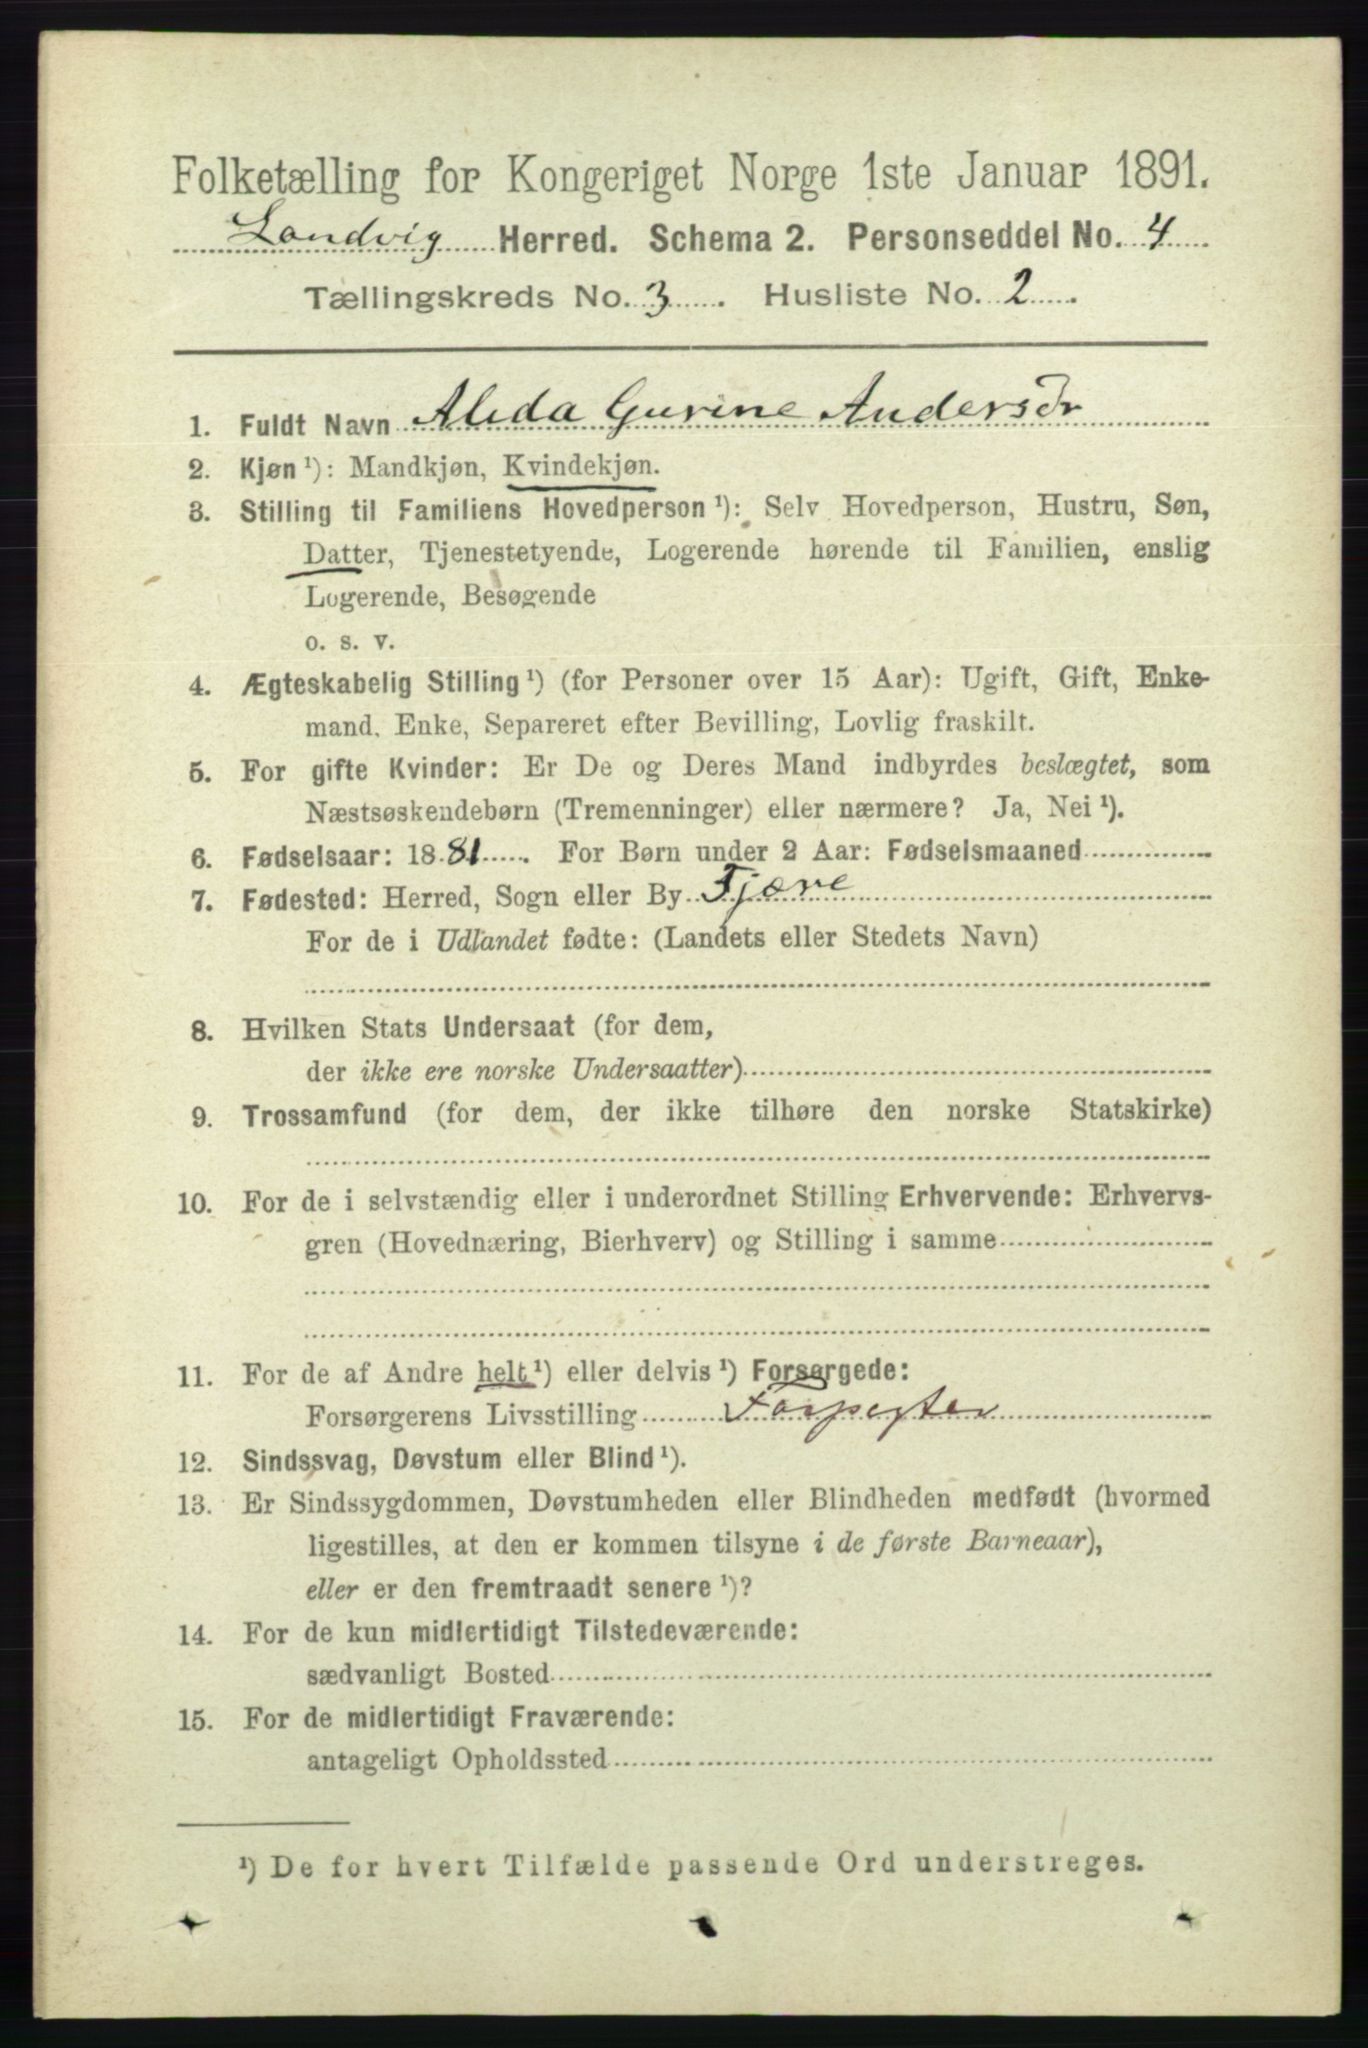 Folketælling for Kongeriget Norge 1ste Januar 1891.
Landvig Herred. Schema 2. Personseddel No. 4
Tællingskreds No. 3. Husliste No. 2.
1. Fuldt Navn Alida Gurine Andersdr
2. Kjøn ¹): Mandkjøn, Kvindekjøn.
3. Stilling til Familiens Hovedperson ¹): Selv Hovedperson, Hustru, Søn,
Datter, Tjenestetyende, Logerende hørende til Familien, enslig
Logerende, Besøgende
o. s. v.
4. Ægteskabelig Stilling ¹) (for Personer over 15 Aar): Ugift, Gift, Enke-
mand, Enke, Separeret efter Bevilling, Lovlig fraskilt.
5. For gifte Kvinder: Er De og Deres Mand indbyrdes beslægtet, som
Næstsøskendebørn (Tremenninger) eller nærmere? Ja, Nei ¹).
6. Fødselsaar: 1881. For Børn under 2 Aar: Fødselsmaaned
7. Fødested: Herred, Sogn eller By Fjære
For de i Udlandet fødte: (Landets eller Stedets Navn)
8. Hvilken Stats Undersaat (for dem,
der ikke ere norske Undersaatter)
9. Trossamfund (for dem, der ikke tilhøre den norske Statskirke)
10. For de i selvstændig eller i underordnet Stilling Erhvervende: Erhvervs-
gren (Hovednæring, Bierhverv) og Stilling i samme
11. For de af Andre helt ¹) eller delvis ¹) Forsørgede:
Forsørgerens Livsstilling Forpagter
12. Sindssvag, Døvstum eller Blind ¹).
13. Er Sindssygdommen, Døvstumheden eller Blindheden medfødt (hvormed
ligestilles, at den er kommen tilsyne i de første Barneaar),
eller er den fremtraadt senere ¹)?
14. For de kun midlertidigt Tilstedeværende:
sædvanligt Bosted
15. For de midlertidigt Fraværende:
antageligt Opholdssted
¹) De for hvert Tilfælde passende Ord understreges.